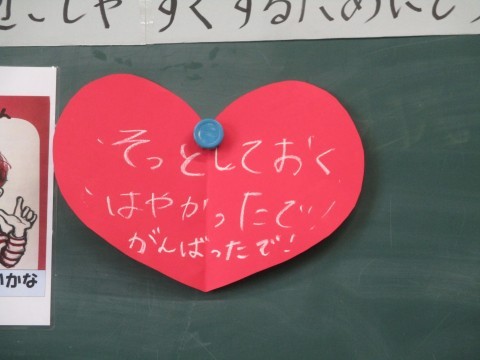 過ごしやすくするためにどう
そっとしておく
はやかったで!
がんばったで!
いかな